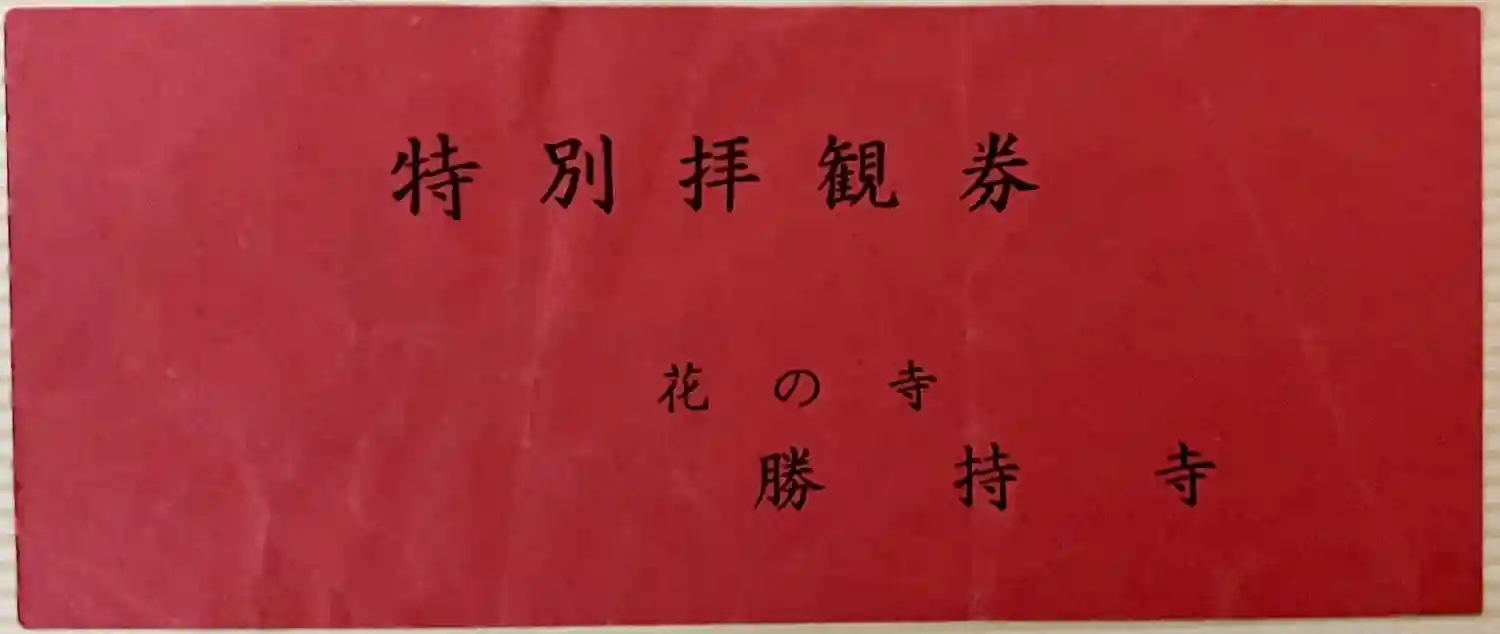 特別拝観券
花の寺
勝持寺